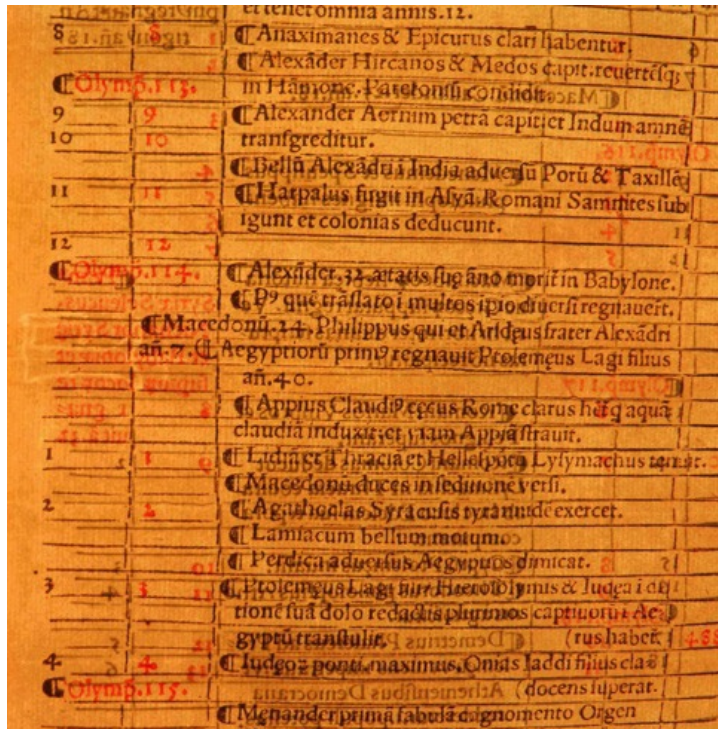 et tenet omnia annis.12.
8 8 ¶Anaximanes & Epicurus clari habentur.
¶Alexãder Hircanos & Medos capit.reuertẽsq;
¶Olymp̃.113. in Hãmone. Paretoniũ condidit.
9 9 ¶Alexander Aornim petrã capit:et Indum amnẽ
10 10 transgreditur.
¶Bellũ Alexãdri ĩ India aduersũ Porũ & Taxillẽ
11 11 ¶Harpalus fugit in Asyã. Romani Samnites sub
igunt et colonias deducunt.
12 12
¶Olymp̃.114. ¶Alexãder.32.ætatis suę ãno morit̃ in Babylone.
¶Pꝰ quẽ trãslato ĩ multos ipĩo diuersi regnauerũt.
¶Macedonũ.24. Philippus qui et Arideus frater Alexãdri
añ.7. ¶Aegyptiorũ primꝰ regnauit Ptolemeus Lagi filius
añ.40.
¶Appius Claudiꝰ cecus Rome clarus hẽt̃ q aquã
claudiã induxit:et viam Appiã strauit.
1 1 ¶Lidiã et Thraciã et Hellespõtũ Lysymachus tenuit.
¶Macedonũ duces in seditione versi.
2 2 ¶Agathoclas Syracusis tyrãnidẽ exercet.
¶Lamiacum bellum motum.
¶Perdica aduersus Aegyptios dimicat.
3 3 ¶Ptolemeus Lagi filiꝰ Hierosolymis & Iudea ĩ di
tionẽ suã dolo redactis plurimos captiuorũ ĩ Ae
gyptũ transtulit. (rus habet̃
4 4 ¶Iudeoꝝ ponti. maximus. Onias Iaddi filius cla
¶Olymp̃.115. (docens superat.
¶Menander primã fabulã cognomento Orgen